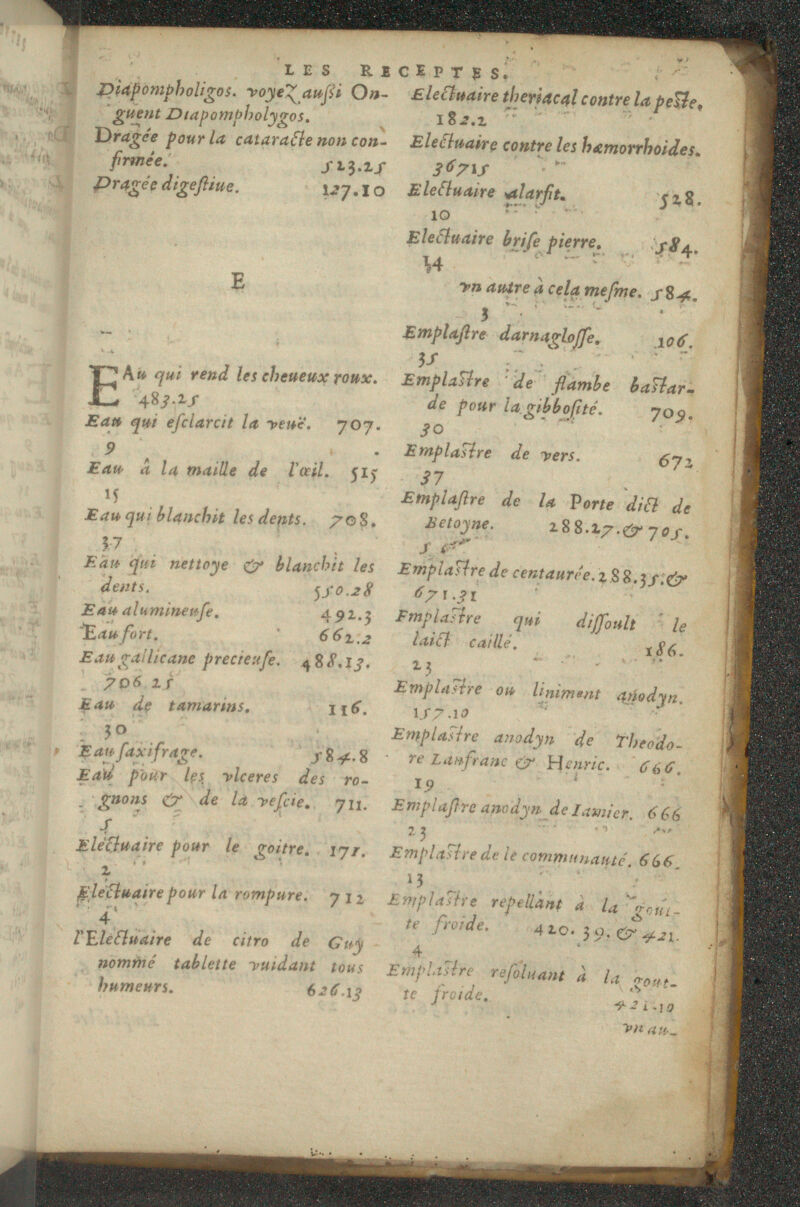 LES RECEPTES.
Diapompholigos. voyez aussi On-
guent Diapompholygos.
Dragée pour la cataracte non con-
firmée. 513.25
Dragée digestiue. 127.10
E
EAu qui rend les cheueux roux.
483.25
Eau qui esclarcit la veuë. 707.
9
Eau à la maille de l'œil. 515
15
Eau qui blanchit les dents. 708.
37
Eau qui nettoye & blanchit les
dents. 550.28
Eau alumineuse. 492.3
Eau fort. 662.2
Eau gallicane precieuse. 488.13.
706 25
Eau de tamarins. 116.
30
Eau saxifrage. 584.8
Eau pour les vlceres des ro-
gnons & de la vescie. 711.
5
Electuaire pour le goitre. 171.
2
Electuaire pour la rompure. 712
4
l'Electuaire de citro de Guy
nommé tablette vuidant tous
humeurs. 626.13
Electuaire theriacal contre la peste.
182.2
Electuaire contre les hæmorrhoides.
36715
Electuaire alarfit. 528.
10
Electuaire brise pierre. 584.
14
vn autre à cela mesme. 584.
3
Emplastre darnaglosse. 106.
35
Emplastre de flambe bastar-
de pour la gibbosité. 709.
30
Emplastre de vers. 672
37
Emplastre de la Porte dict de
Betoyne. 288.27.& 705.
5
Emplastre de centaurée. 288.35.&
671.31
Emplastre qui dissoult le
laict caillé. 186.
23
Emplastre ou liniment anodyn.
157.10
Emplastre anodyn de Theodo-
re Lanfranc & Henric. 666.
19
Emplastre anodyn de Iamier. 666
23
Emplastre de le communauté. 666.
13
Emplastre repellant à la gout-
te froide. 420.39.& 421.
4
Emplastre resoluant à la gout-
te froide. 421.10
vn au-